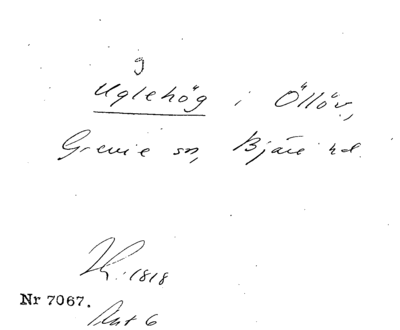 g
Uglehög i Öllöv,
Grevie sn, Bjäre hd.
1818
Nr 7067.
Akt 6